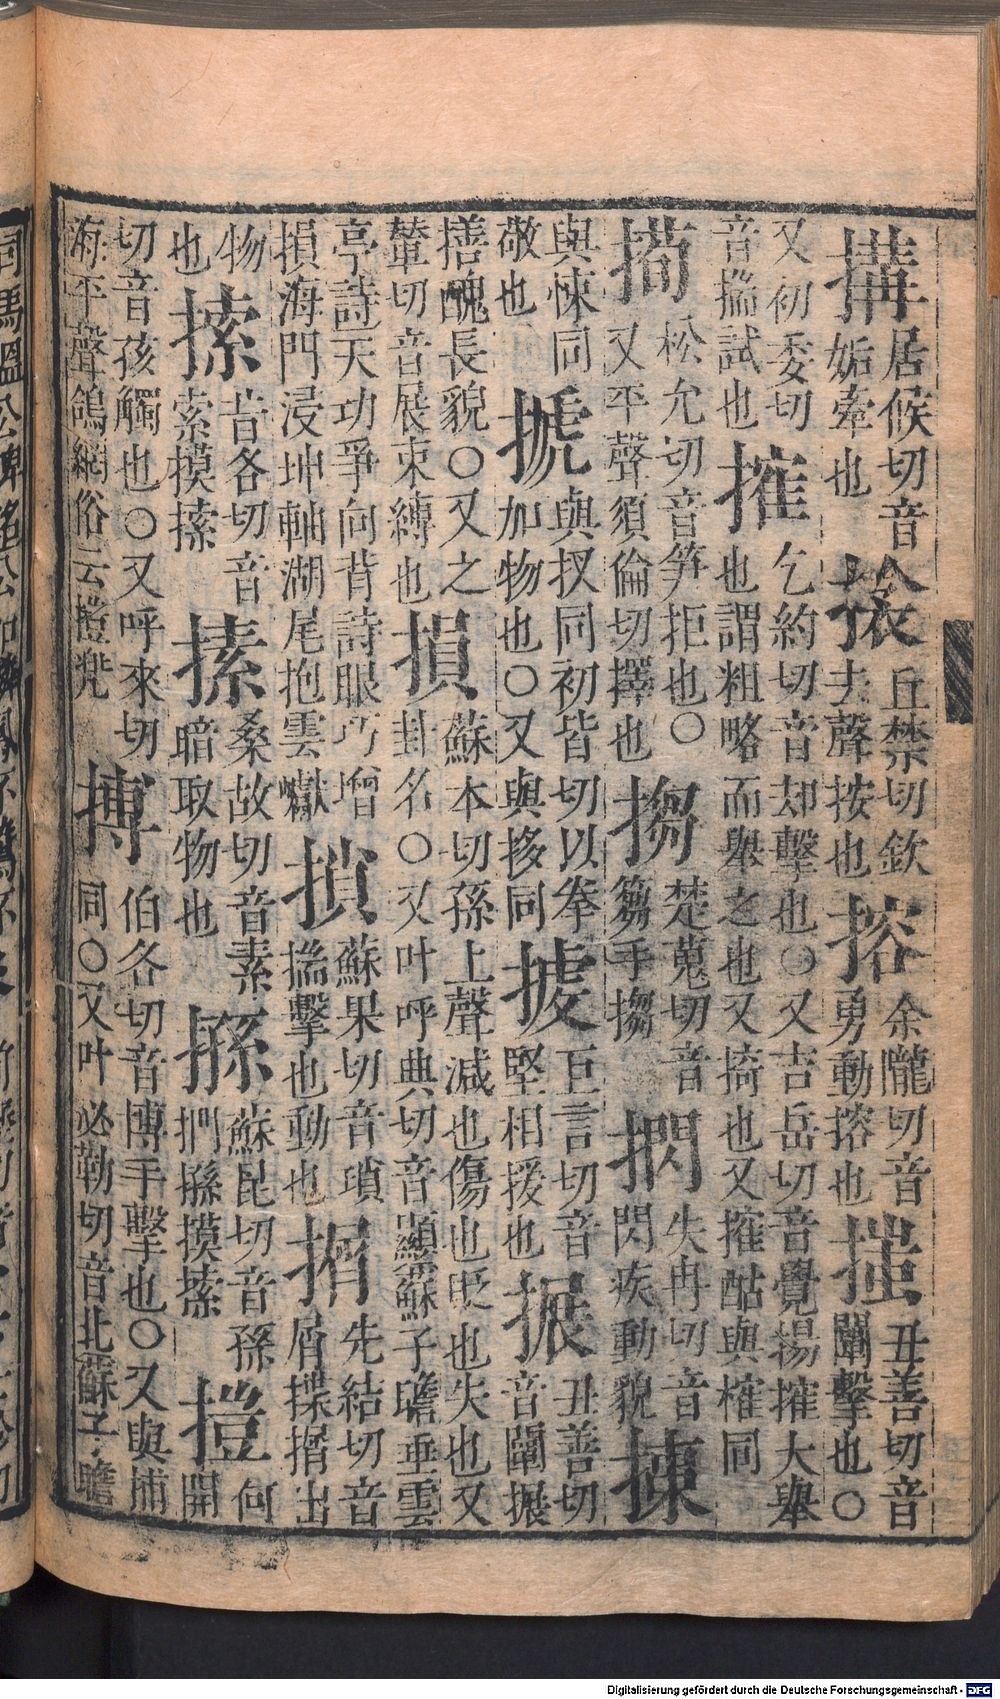 搆居候切音姤牽也 搇丘禁切欽去聲按也 搈余隴切音勇動搈也 丑善切音闡擊也〇
又初委切音揣試也 搉乞約切音却擊也〇又吉岳切音覺揚搉大舉也謂粗略而舉之也又掎也又搉酤與榷同
松允切音笋拒也〇又平聲須倫切擇也 搊楚蒐切音篘手搊 㨛失冉切音閃疾動貌 捒
與悚同敬也 搋與扠同初皆切以拳加物也〇又與拸同 巨言切音堅相援也 搌丑善切音闡搌
醜長貌〇又之輦切音展束縛也 損蘇本切孫上聲減也傷也貶也失也又封名〇又叶呼典切音顯蘇子瞻垂雲
亭詩天功爭向背詩眼巧增損海門浸坤軸湖尾抱雲巘 蘇果切音瑣揣擊也動也 㨝先結切音屑揲㨝出
物也 𢱢昔各切音索摸𢱢 㨞桑故切音素暗取物也 搎蘇昆切音孫捫搎摸𢱢 㨟何開
切音孩觸也〇又呼來切海平聲鴿網俗云㨟兠 搏伯各切音博手擊也〇又與捕同〇又叶必勒切音北蘇子瞻
Digitalisierung gefördert durch die Deutsche Forschungsgemeinschaft - DFG